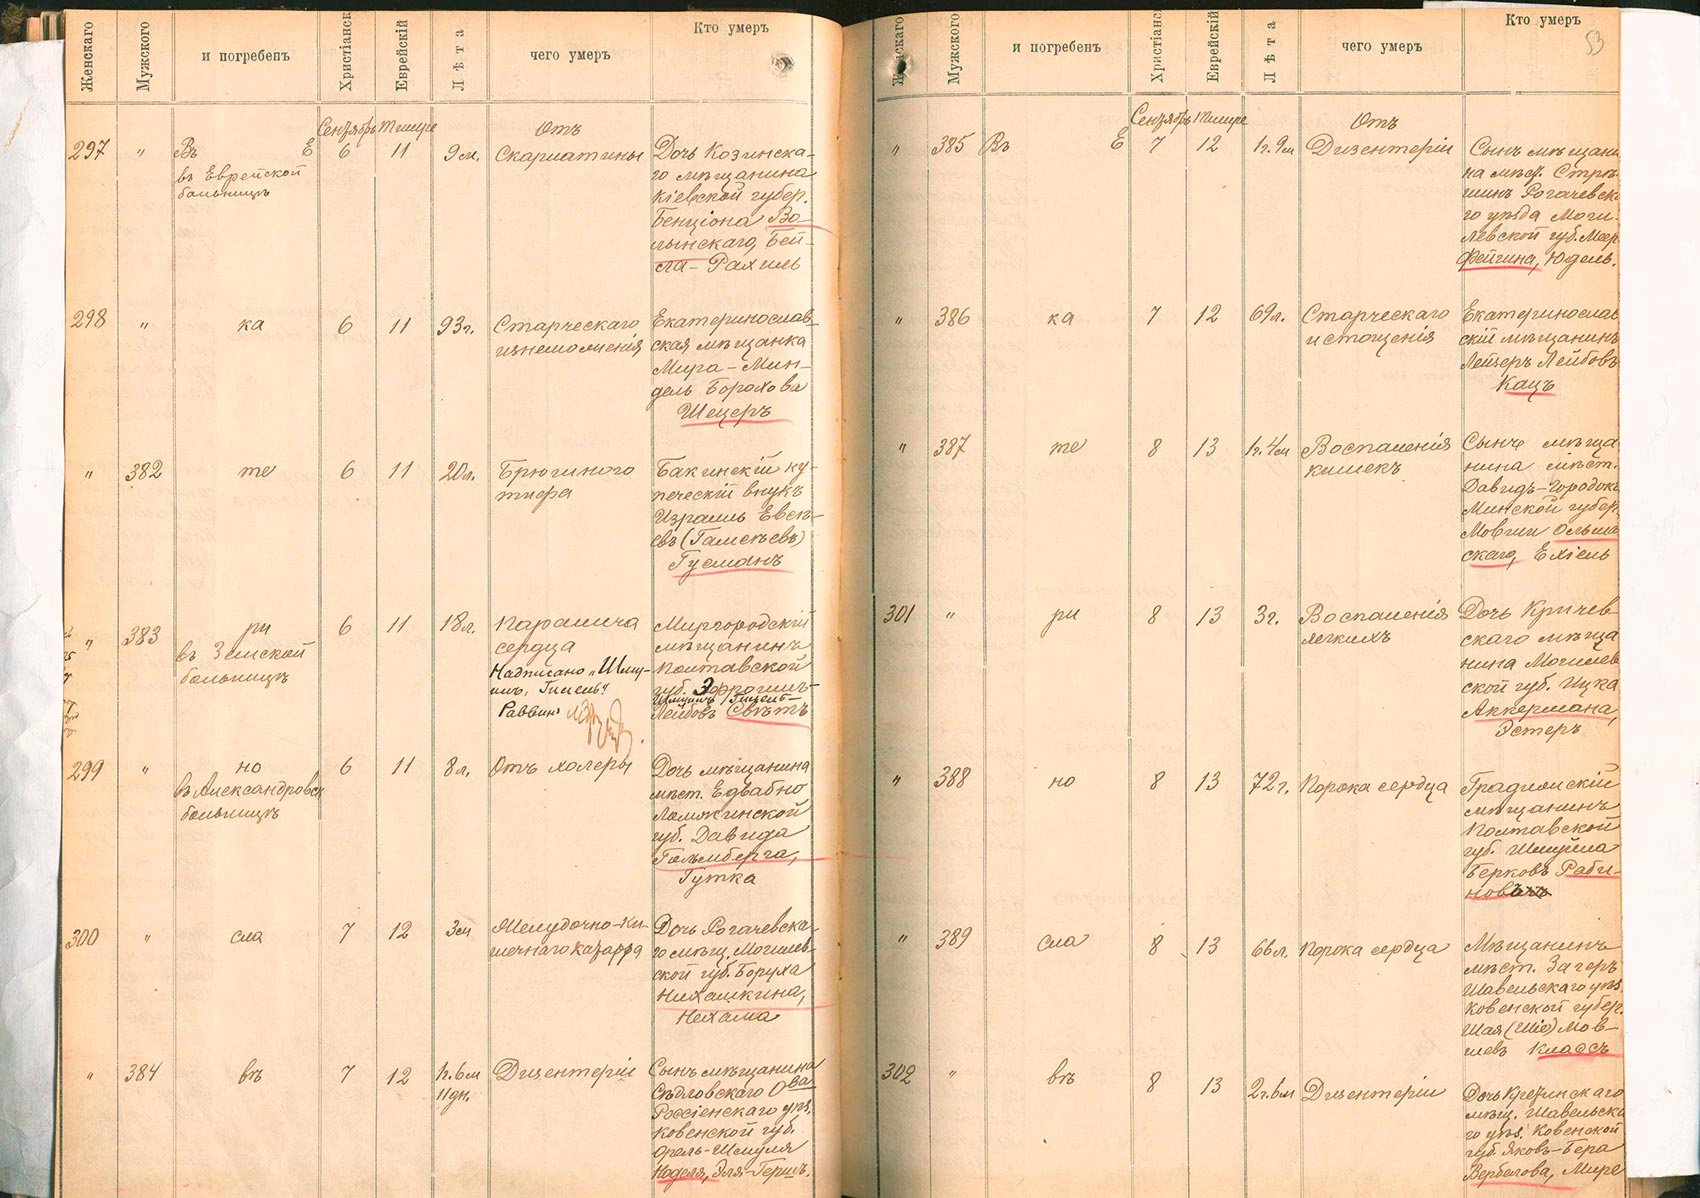 Женскаго
Мужского
и погребенъ
Христіанск
Еврейскій
Лѣта
чего умеръ
Кто умеръ
Сентябрь Тишре
Отъ
297 " Въ Е 6 11 9 м. Скарлатины
въ Еврейской
больницѣ
Дочь Козинска-
го мѣщанина
Кіевской губер.
Бенціона Во-
лынскаго, Бей-
ла-Рахиль
298 " ка 6 11 93 г. Старческаго
изнеможенія
Екатеринослав-
ская мѣщанка
Мира-Мин-
дель Борохова
Шецеръ
" 382 те 6 11 20 л. Брюшного
тифа
Бакинскій ку-
печескій внукъ
Израиль Евсѣ-
евъ (Гамсѣевъ)
Гусманъ
" 383 ри 6 11 18 л. Паралича
въ Земской
больницѣ
сердца
Надписано "Шму-
иль, Гисель"
Раввинъ
Миргородскій
мѣщанинъ
Полтавской
губ. Эфроимъ-
Шмуилъ Гисель-
Лейбовъ Свѣтъ
299 " но 6 11 8 л. Отъ холеры
въ Александровск
больницѣ
Дочь мѣщанина
мѣст. Едвабно
Ломжинской
губ. Давида
Гольмберга,
Гутка
300 " сла 7 12 3 м Желудочно-ки-
шечнаго катарра
Дочь Рогачевска-
го мѣщ. Могилев-
ской губ. Боруха
Нихамкина,
Нехама
" 384 въ 7 12 1 г. 6 м
11 дн.
Дизентеріи
Сынъ мѣщанина
Сѣдловскаго О-ва
Россіенскаго уѣз.
Ковенской губ.
Орель-Шмуля
Ноделя, Эля-Гершъ.
53
Женскаго
Мужского
и погребенъ
Христіанс
Еврейскій
Лѣта
чего умеръ
Кто умеръ
Сентябрь Тишре
Отъ
" 385 Въ Е 7 12 1 г. 9 м Дизентеріи
Сынъ мѣщани
на мѣст. Стрѣ
шинъ Рогачевска
го уѣзда Моги-
левской губ. Меер
Фейгина, Юдель.
" 386 ка 7 12 69 л. Старческаго
истощенія
Екатеринослав
скій мѣщанинъ
Лейзеръ Лейбовъ
Кацъ
" 387 те 8 13 1 г. 4 м Воспаленія
кишекъ
Сынъ мѣща
нина мѣст.
Давидъ-Городокъ
Минской губер.
Мовши Ольша
скаго, Ехіель
301 " ри 8 13 3 г. Воспаленія
легкихъ
Дочь Кричев-
скаго мѣща
нина Могилев
ской губ. Ицка
Аккермана,
Эстеръ
" 388 но 8 13 72 г. Порока сердца
Градижскій
мѣщанинъ
Полтавской
губ. Шмуйла
Берковъ Раби-
новичъ
" 389 сла 8 13 66 л. Порока сердца
Мѣщанинъ
мѣст. Загеръ
Шавельскаго уѣз.
Ковенской губер.
Шая (Шіе) Мов-
шевъ Кладсъ
302 " въ 8 13 2 г. 6 м Дизентеріи
Дочь
мѣщ. Шавельска
го уѣз. Ковенской
губ. Яковъ-Бера
Вербелова, Мире